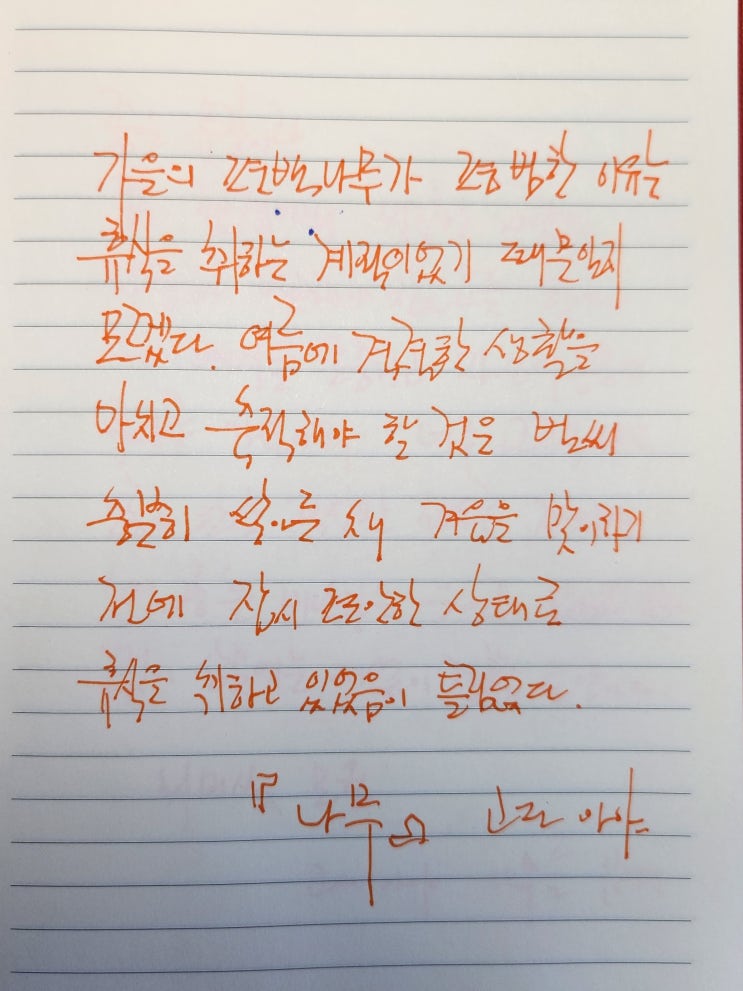 가을의 편백나무가 평범한 이유는
휴식을 취하는 계획이었기 때문인지
모르겠다. 여름에 격렬한 생활을
마치고 축적해야 할 것은 벌써
충분히 쌓아둔 채 겨울을 맞이하기
전에 잠시 편안한 상태로
휴식을 취하고 있었음이 틀림없다.
『나무』 고다 아야